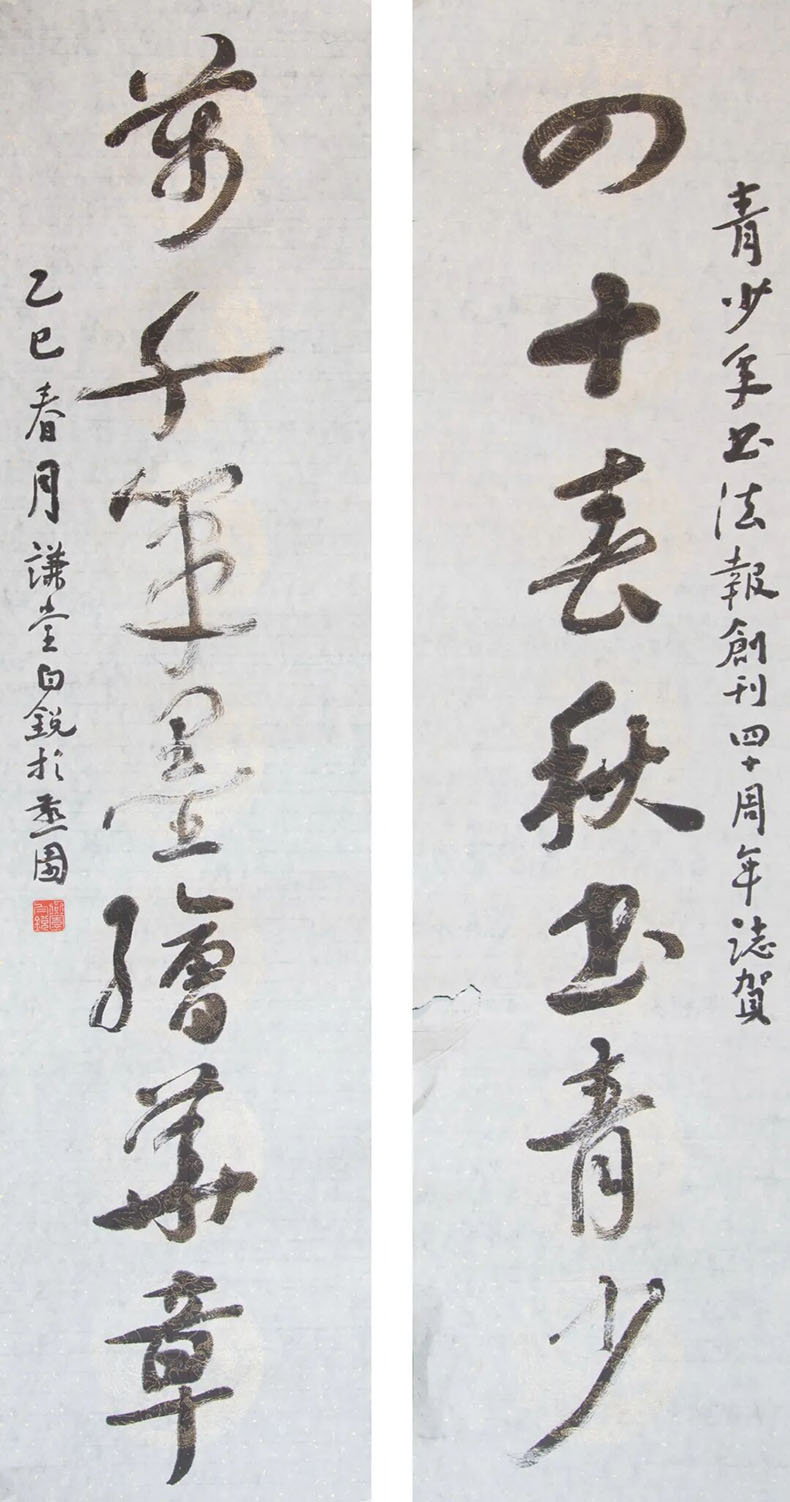 青少年书法報創刊四十周年誌賀
四十春秋书青少
萬千筆墨繪華章
乙巳春月謙堂白銳於燕園